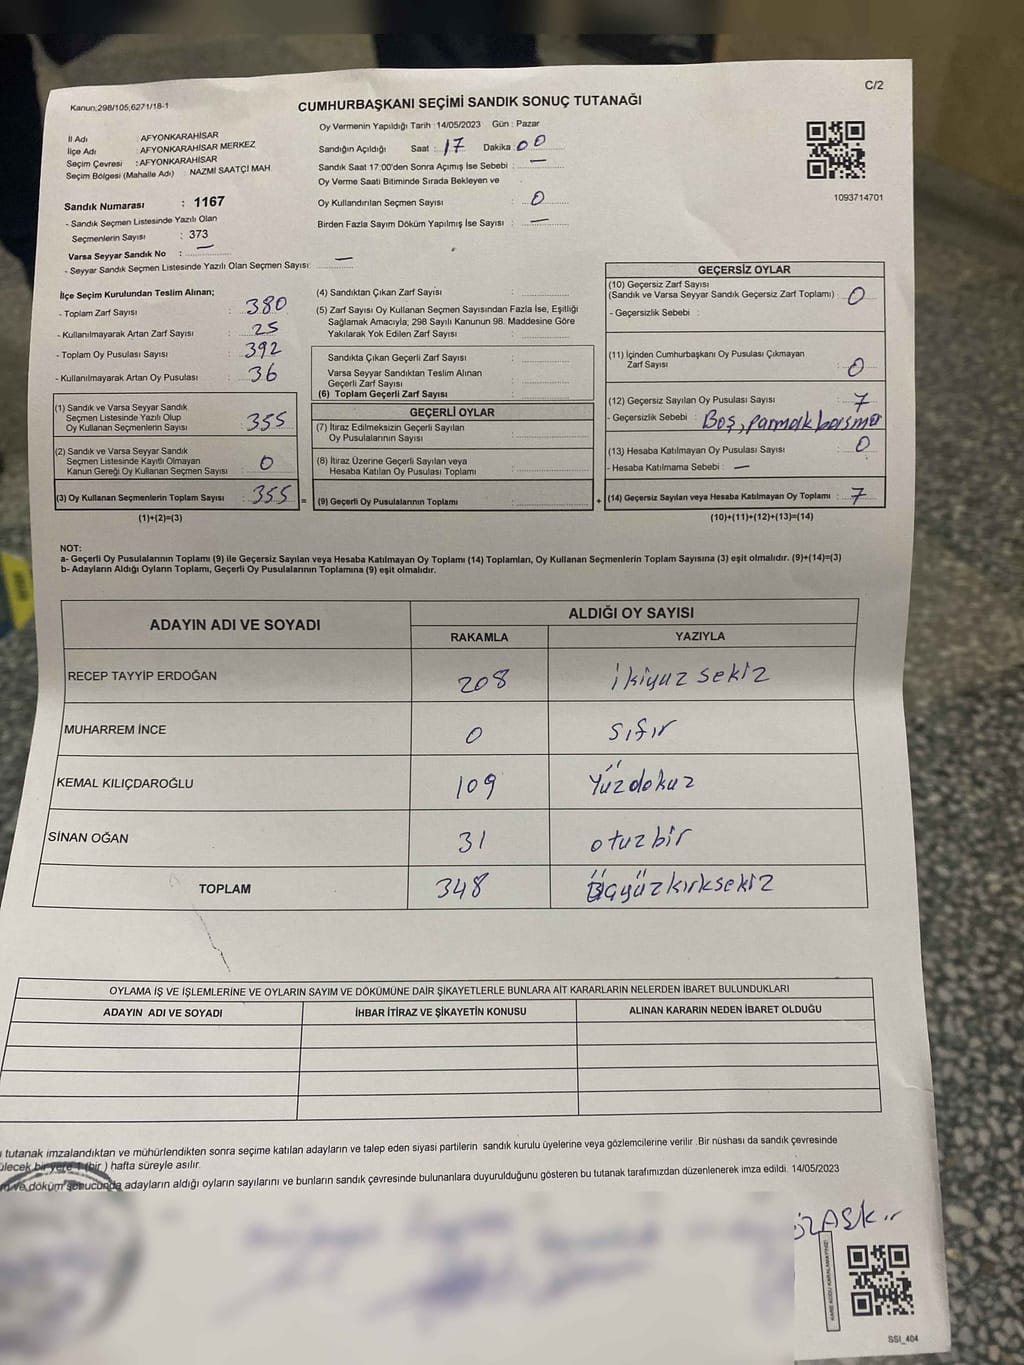 Kanun;298/105,6271/18-1
CUMHURBAŞKANI SEÇİMİ SANDIK SONUÇ TUTANAĞI
C/2
İl Adı : AFYONKARAHİSAR
İlçe Adı : AFYONKARAHİSAR MERKEZ
Seçim Çevresi : AFYONKARAHİSAR
Seçim Bölgesi (Mahalle Adı) : NAZMİ SAATÇİ MAH.
Oy Vermenin Yapıldığı Tarih :14/05/2023 Gün : Pazar
Sandığın Açıldığı Saat : 17 Dakika : 00
Sandık Saat 17:00'den Sonra Açımış İse Sebebi : —
Oy Verme Saati Bitiminde Sırada Bekleyen ve
Oy Kullandırılan Seçmen Sayısı : 0
Birden Fazla Sayım Döküm Yapılmış İse Sayısı : —
1093714701
Sandık Numarası : 1167
- Sandık Seçmen Listesinde Yazılı Olan
Seçmenlerin Sayısı : 373
Varsa Seyyar Sandık No : —
- Seyyar Sandık Seçmen Listesinde Yazılı Olan Seçmen Sayısı: —
İlçe Seçim Kurulundan Teslim Alınan;
- Toplam Zarf Sayısı : 380
- Kullanılmayarak Artan Zarf Sayısı : 25
- Toplam Oy Pusulası Sayısı : 392
- Kullanılmayarak Artan Oy Pusulası : 36
(1) Sandık ve Varsa Seyyar Sandık
Seçmen Listesinde Yazılı Olup
Oy Kullanan Seçmenlerin Sayısı : 355
(2) Sandık ve Varsa Seyyar Sandık
Seçmen Listesinde Kayıtlı Olmayan
Kanun Gereği Oy Kullanan Seçmen Sayısı : 0
(3) Oy Kullanan Seçmenlerin Toplam Sayısı : 355 =
(1)+(2)=(3)
(4) Sandıktan Çıkan Zarf Sayısı :
(5) Zarf Sayısı Oy Kullanan Seçmen Sayısından Fazla İse, Eşitliği
Sağlamak Amacıyla; 298 Sayılı Kanunun 98. Maddesine Göre
Yakılarak Yok Edilen Zarf Sayısı :
Sandıkta Çıkan Geçerli Zarf Sayısı :
Varsa Seyyar Sandıktan Teslim Alınan
Geçerli Zarf Sayısı :
(6) Toplam Geçerli Zarf Sayısı :
GEÇERLİ OYLAR
(7) İtiraz Edilmeksizin Geçerli Sayılan
Oy Pusulalarının Sayısı :
(8) İtiraz Üzerine Geçerli Sayılan veya
Hesaba Katılan Oy Pusulası Toplamı :
(9) Geçerli Oy Pusulalarının Toplamı : +
GEÇERSİZ OYLAR
(10) Geçersiz Zarf Sayısı
(Sandık ve Varsa Seyyar Sandık Geçersiz Zarf Toplamı) : 0
- Geçersizlik Sebebi :
(11) İçinden Cumhurbaşkanı Oy Pusulası Çıkmayan
Zarf Sayısı : 0
(12) Geçersiz Sayılan Oy Pusulası Sayısı : 7
- Geçersizlik Sebebi : Boş, parmak basma
(13) Hesaba Katılmayan Oy Pusulası Sayısı : 0
- Hesaba Katılmama Sebebi : —
(14) Geçersiz Sayılan veya Hesaba Katılmayan Oy Toplamı : 7
(10)+(11)+(12)+(13)=(14)
NOT:
a- Geçerli Oy Pusulalarının Toplamı (9) ile Geçersiz Sayılan veya Hesaba Katılmayan Oy Toplamı (14) Toplamları, Oy Kullanan Seçmenlerin Toplam Sayısına (3) eşit olmalıdır. (9)+(14)=(3)
b- Adayların Aldığı Oyların Toplamı, Geçerli Oy Pusulalarının Toplamına (9) eşit olmalıdır.
ADAYIN ADI VE SOYADI
ALDIĞI OY SAYISI
RAKAMLA YAZIYLA
RECEP TAYYİP ERDOĞAN 208 ikiyüz sekiz
MUHARREM İNCE 0 sıfır
KEMAL KILIÇDAROĞLU 109 Yüzdokuz
SİNAN OĞAN 31 otuzbir
TOPLAM 348 Üçyüzkırksekiz
OYLAMA İŞ VE İŞLEMLERİNE VE OYLARIN SAYIM VE DÖKÜMÜNE DAİR ŞİKAYETLERLE BUNLARA AİT KARARLARIN NELERDEN İBARET BULUNDUKLARI
ADAYIN ADI VE SOYADI İHBAR İTİRAZ VE ŞİKAYETİN KONUSU ALINAN KARARIN NEDEN İBARET OLDUĞU
tutanak imzalandıktan ve mühürlendikten sonra seçime katılan adayların ve talep eden siyasi partilerin sandık kurulu üyelerine veya gözlemcilerine verilir .Bir nüshası da sandık çevresinde
ülecek bir yere 1 (bir ) hafta süreyle asılır.
ve döküm sonucunda adayların aldığı oyların sayılarını ve bunların sandık çevresinde bulunanlara duyurulduğunu gösteren bu tutanak tarafımızdan düzenlenerek imza edildi. 14/05/2023
SSI_404